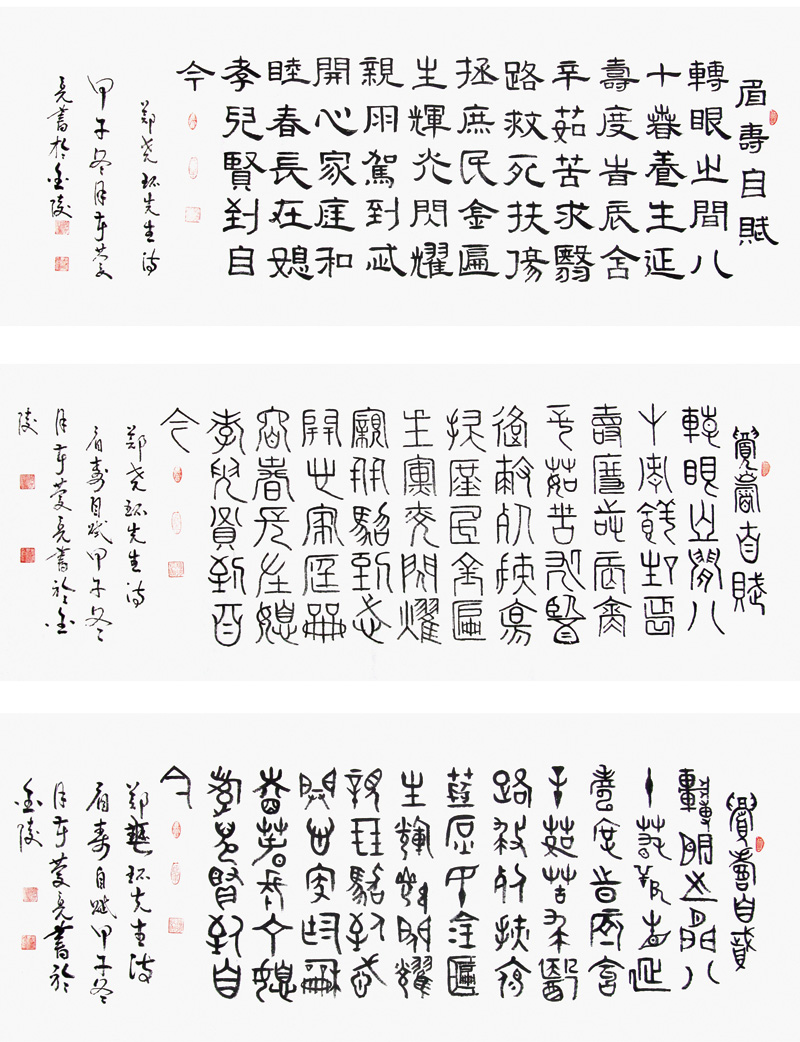 眉壽自賦
轉眼之間八
十春養生延
壽度昔辰舍
辛茹苦求醫
路救死扶傷
拯庶民金匾
生輝光閃耀
親朋駕到忒
開心家庭和
睦春長在媳
孝兒賢到自
今
鄭堯先生诗
甲午冬月
亮書於金陵
眉壽自賦
轉眼之間八
十春養生延
壽度昔辰舍
辛茹苦求醫
路救死扶傷
拯庶民金匾
生輝光閃耀
親朋駕到忒
開心家庭和
睦春長在媳
孝兒賢到自
今
鄭堯先生诗
眉壽自賦甲午冬
月亮書於金
陵
眉壽自賦
轉眼之間八
十春養生延
壽度昔辰舍
辛茹苦求醫
路救死扶傷
拯庶民金匾
生輝光閃耀
親朋駕到忒
開心家庭和
睦春長在媳
孝兒賢到自
今
鄭堯先生诗
眉壽自賦甲午冬
月亮書於
金陵